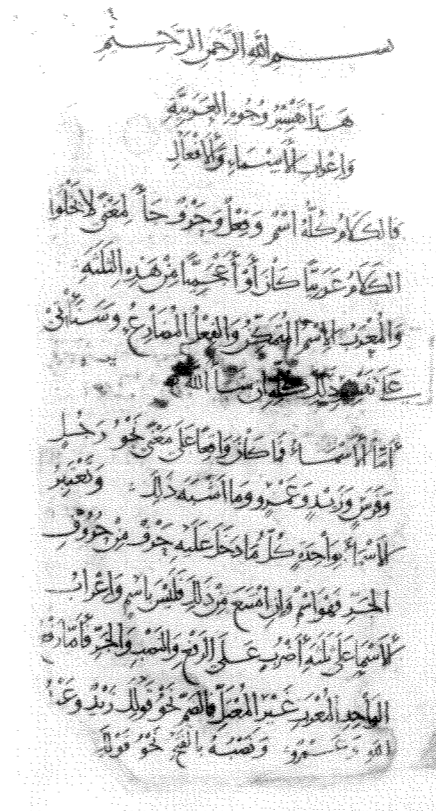 بسم الله الرحمن الرحيم
هذا تفسير وجوه العربية
واعراب الأسماء والأفعال
فالكلام كله اسم وفعل وحرف جاء لمعنى لا يخلوا
الكلام عربيا كان أو أعجميا من هذه الثلثة
والمعرب الاسم المتمكن والفعل المضارع وسنأتي
على تفسير ذلك كله إن شاء الله
أما الأسماء فما كان واقعا على معنى نحو رجل
وفرس وزيد وعمرو وما اشبه ذلك وتعتبر
الأسماء بواحدة كل ما دخل عليه حرف من حروف
الجر فهو اسم وإن امتنع من ذلك فليس باسم واعراب
الأسما على ثلثة أضرب على الرفع والنصب والجر فأما رفع
الواحد المعرب غير المعتل فالضم نحو قولك زيد وعبد
الله وعمرو ونصبه بالفتح نحو قولك